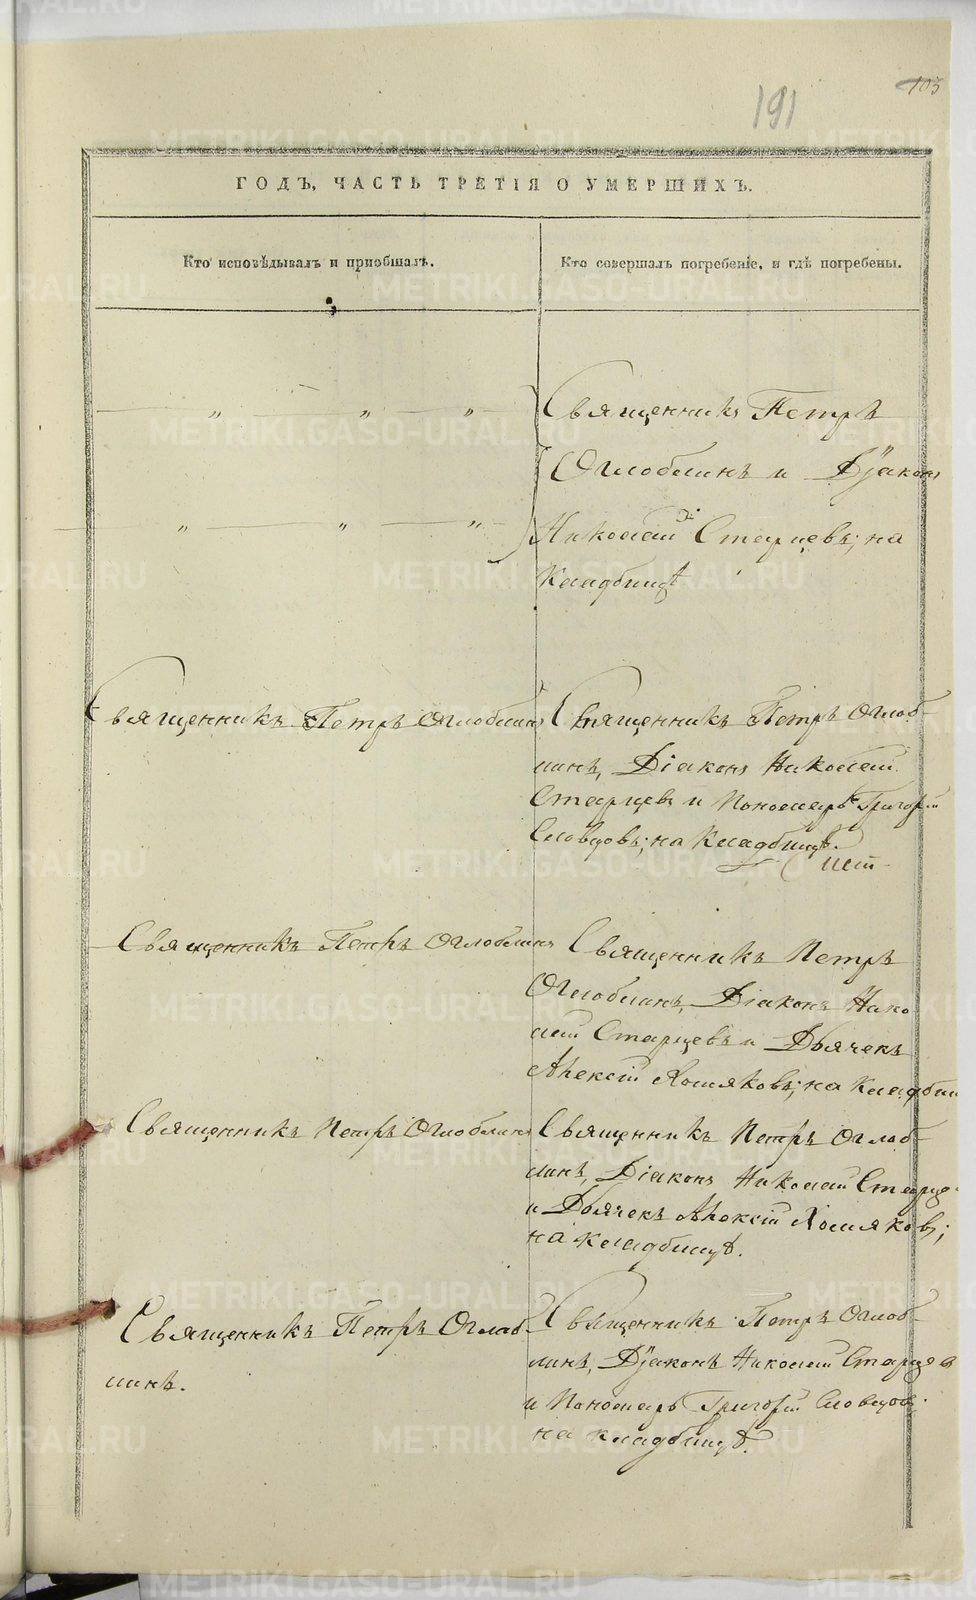 191
103
ГОДЪ, ЧАСТЬ ТРЕТІЯ О УМЕРШИХЪ.
Кто исповѣдывалъ и пріобщалъ.
Кто совершалъ погребеніе, и гдѣ погребены.
Священникъ Петръ
Оглоблинъ и Дїаконъ
Николай Старцевъ; на
Кладбищѣ
Священникъ Петръ Оглоблинъ
Священникъ Петръ Оглоб-
линъ, Діаконъ Николай
Старцевъ и Пономарь Григорій
Словцовъ; на Кладбищѣ.
Священникъ Петръ Оглоблинъ
Священникъ Петръ
Оглоблинъ, Діаконъ Нико
лай Старцевъ и Дьячекъ
Алексій Холмяковъ; на Кладби
Священникъ Петръ Оглоблинъ
Священникъ Петръ Оглоб-
линъ, Діаконъ Николай Старце
и Дьячекъ Алексій Холмяковъ;
на кладбищѣ.
Священникъ Петръ Оглоб-
линъ.
Священникъ Петръ Оглоб-
линъ, Дїаконъ Николай Старцев
и Пономарь Григорій Словцовъ;
на кладбищѣ.
METRIKI.GASO-URAL.RU